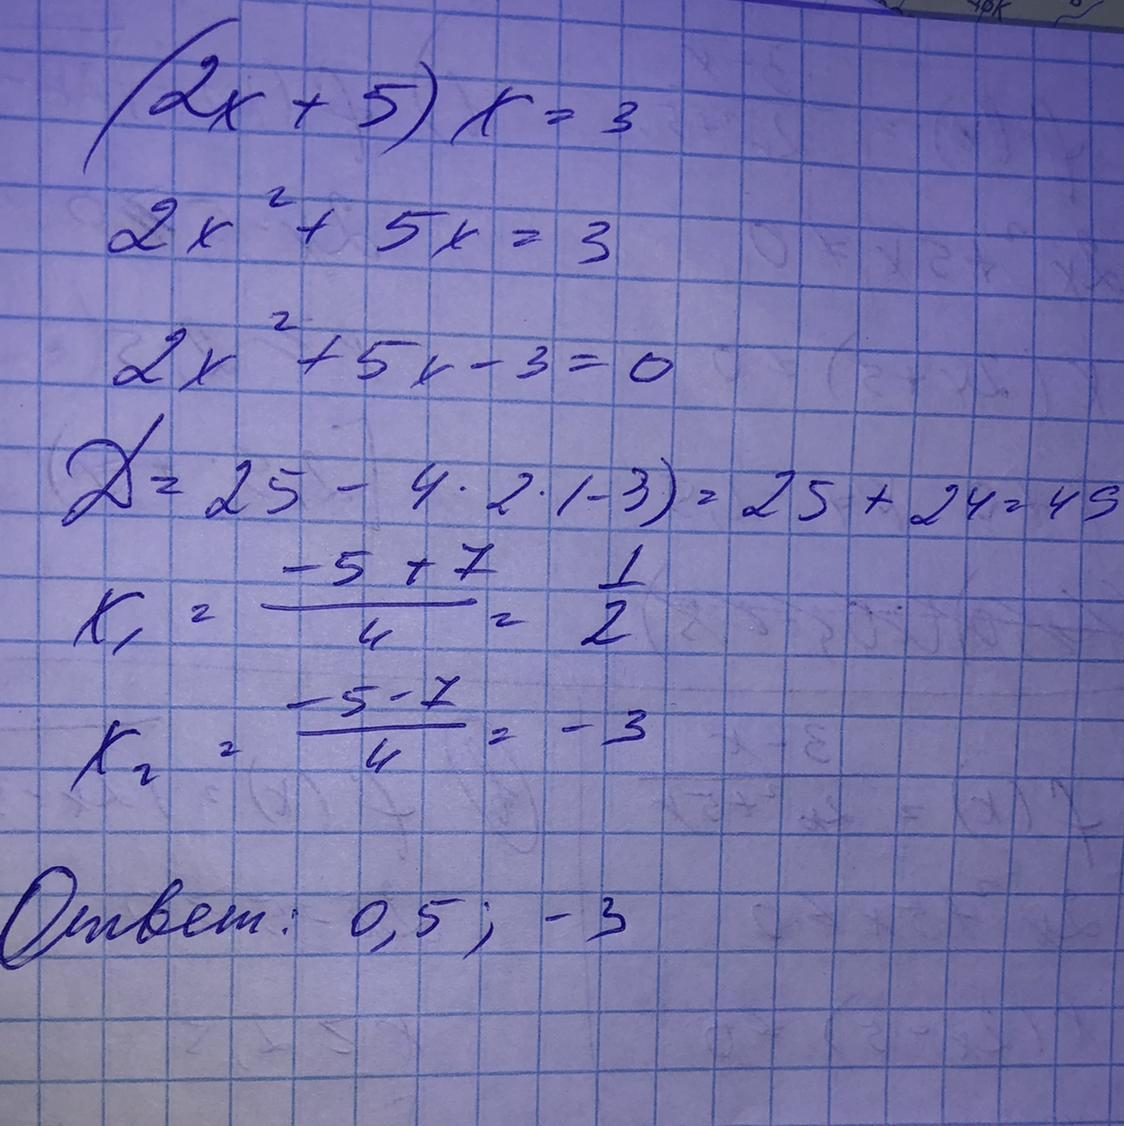 (2x + 5) x = 3
2x² + 5x = 3
2x² + 5x - 3 = 0
D = 25 - 4 · 2 · (-3) = 25 + 24 = 49
x₁ = (-5 + 7)/4 = 1/2
x₂ = (-5 - 7)/4 = -3
Ответ: 0,5; -3